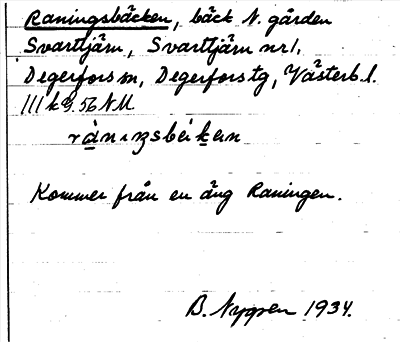 Raningsbäcken, bäck N. gården
Svarttjärn, Svarttjärn nr 1,
Degerfors sn, Degerfors tg, Västerb. l.
rànıŋsbäkən
Kommer från en äng Raningen.
B. Nygren 1934.